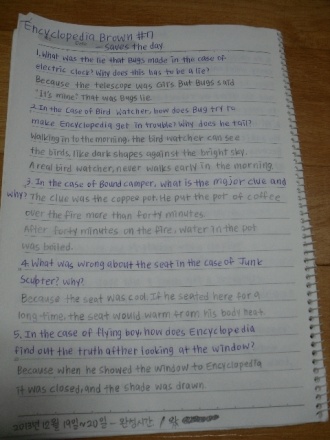 Encyclopedia Brown #7
saves the day
1. What was the lie that Bugs made in the case of
electric clock? Why does this has to be a lie?
Because the telescope was Gil's. But Bugs said
"It's mine." That was Bugs lie.
2. In the Case of Bird Watcher, how does Bug try to
make Encyclopedia get in trouble? Why does he fail?
Walking in to the morning, the bird watcher can see
the birds, like dark shapes against the bright sky.
A real bird watcher, never walks early in the morning.
3. In the case of Bound camper, what is the major clue and
why? The clue was the coppee pot. He put the pot of coffee
over the fire more than forty minutes.
After forty minutes on the fire, water in the pot
was boiled.
4. What was wrong about the seat in the case of Junk
Sculpter? why?
Because the seat was cool. If he seated here for a
long time, the seat would warm from his body heat.
5. In the case of flying boy how does Encyclopedia
find out the truth afther looking at the window?
Because when he showed the window to Encyclopedia
it was closed, and the shade was drawn.
12월 19일~20일 - 완성시간